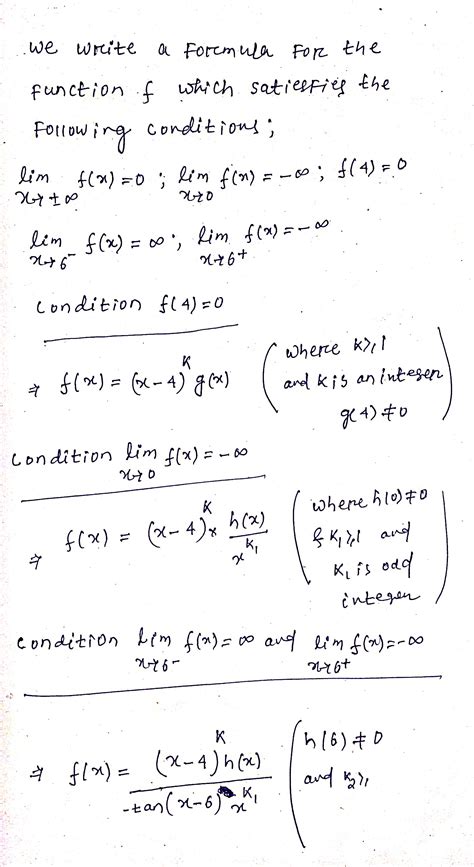 we write a formula for the
function f which satiesfies the
following conditions;
lim f(x)=0 ; lim f(x) = -∞ ; f(4)=0
x→±∞ x→0
lim f(x) = ∞ ; lim f(x) = -∞
x→6⁻ x→6⁺
condition f(4)=0
⇒ f(x) = (x-4)^K g(x) (where K≥1
and K is an integer
g(4) ≠ 0)
condition lim f(x) = -∞
x→0
⇒ f(x) = (x-4)^K × h(x)/x^K₁ (where h(0)≠0
& K₁≥1 and
K₁ is odd
integer)
condition lim f(x) = ∞ and lim f(x) = -∞
x→6⁻ x→6⁺
⇒ f(x) = (x-4)^K h(x) / -tan(x-6) x^K₁ (h(6) ≠ 0
and K₂≥1)